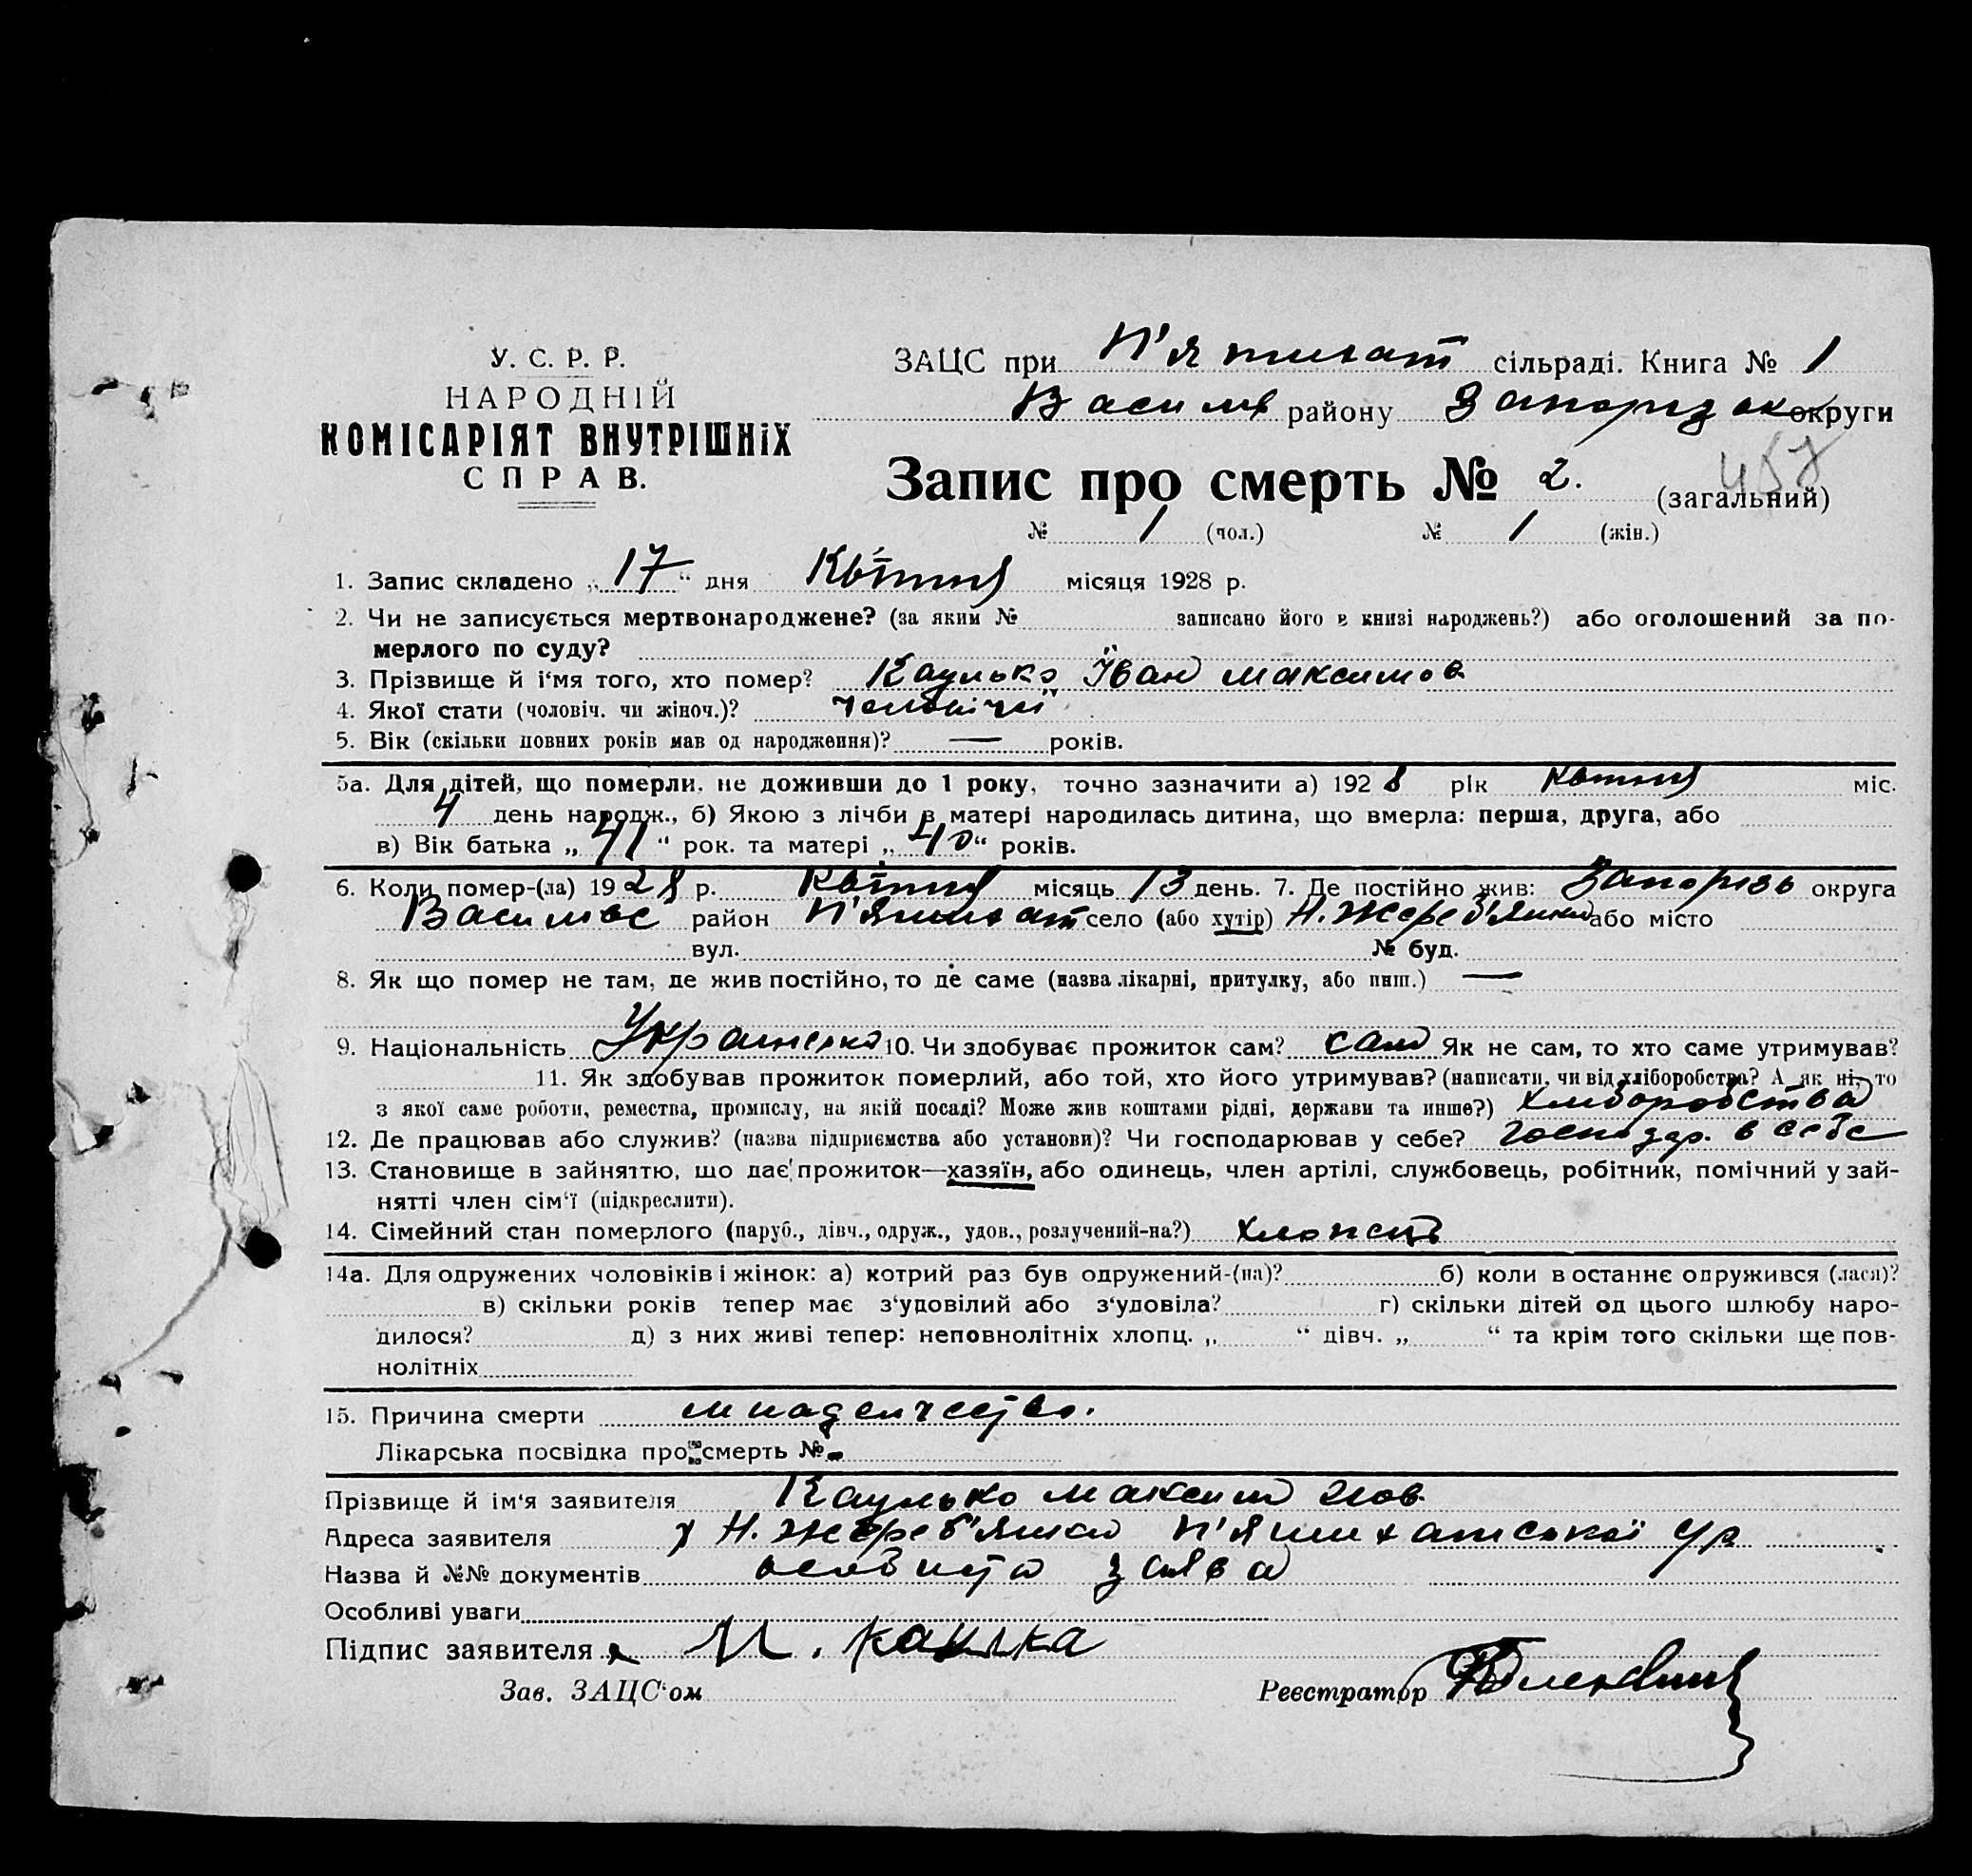 У. С. Р. Р.
НАРОДНІЙ
КОМІСАРІЯТ ВНУТРІШНІХ
СПРАВ.
ЗАЦС при П'ятихат сільраді. Книга № 1
Василів району Запоріз округи
Запис про смерть № 2. (загальний)
457
№ 1 (чол.) № 1 (жін.)
1. Запис складено „ 17 “ дня Квітня місяця 1928 р.
2. Чи не записується мертвонароджене? (за яким № записано його в книзі народжень?) або оголошений за по-
мерлого по суду?
3. Прізвище й і'мя того, хто помер? Каулько Іван Максимов
4. Якої стати (чоловіч. чи жіноч.)? чоловічий
5. Вік (скільки повних років мав од народження)? — років.
5а. Для дітей, що померли, не доживши до 1 року, точно зазначити а) 1928 рік квітня міс.
4 день народж., б) Якою з лічби в матері народилась дитина, що вмерла: перша, друга, або
в) Вік батька „ 41 “ рок. та матері „ 40 “ років.
6. Коли помер-(ла) 1928 р. Квітня місяць 13 день. 7. Де постійно жив: Запорізь округа
Василівс район П'ятихат село (або хутір) Н. Жереб'янки або місто
вул. № буд.
8. Як що помер не там, де жив постійно, то де саме (назва лікарні, притулку, або инш.) —
9. Національність 10. Чи здобуває прожиток сам? сам Як не сам, то хто саме утримував?
11. Як здобував прожиток померлий, або той, хто його утримував? (написати, чи від хліборобства? А як ні, то
з якої саме роботи, ремества, промислу, на якій посаді? Може жив коштами рідні, держави та инше?) хліборобства
12. Де працював або служив? (назва підприємства або установи)? Чи господарював у себе? господар. в себе
13. Становище в зайняттю, що дає прожиток—хазяїн, або одинець, член артілі, службовець, робітник, помічний у зай-
нятті член сім'ї (підкреслити).
14. Сімейний стан померлого (паруб., дівч., одруж., удов., розлучений-на?) хлопець
14а. Для одружених чоловіків і жінок: а) котрий раз був одружений-(на)? б) коли в останнє одружився (лася)?
в) скільки років тепер має з'удовілий або з'удовіла? г) скільки дітей од цього шлюбу наро-
дилося? д) з них живі тепер: неповнолітніх хлопц. „ “ дівч. „ “ та крім того скільки ще пов-
нолітніх
15. Причина смерти младенчество.
Лікарська посвідка про смерть №
Прізвище й ім'я заявителя Каулько Максим
Адреса заявителя х Н. Жереб'янки П'ятихатської
Назва й №№ документів особиста заява
Особливі уваги
Підпис заявителя
Зав. ЗАЦС'ом Реєстратор